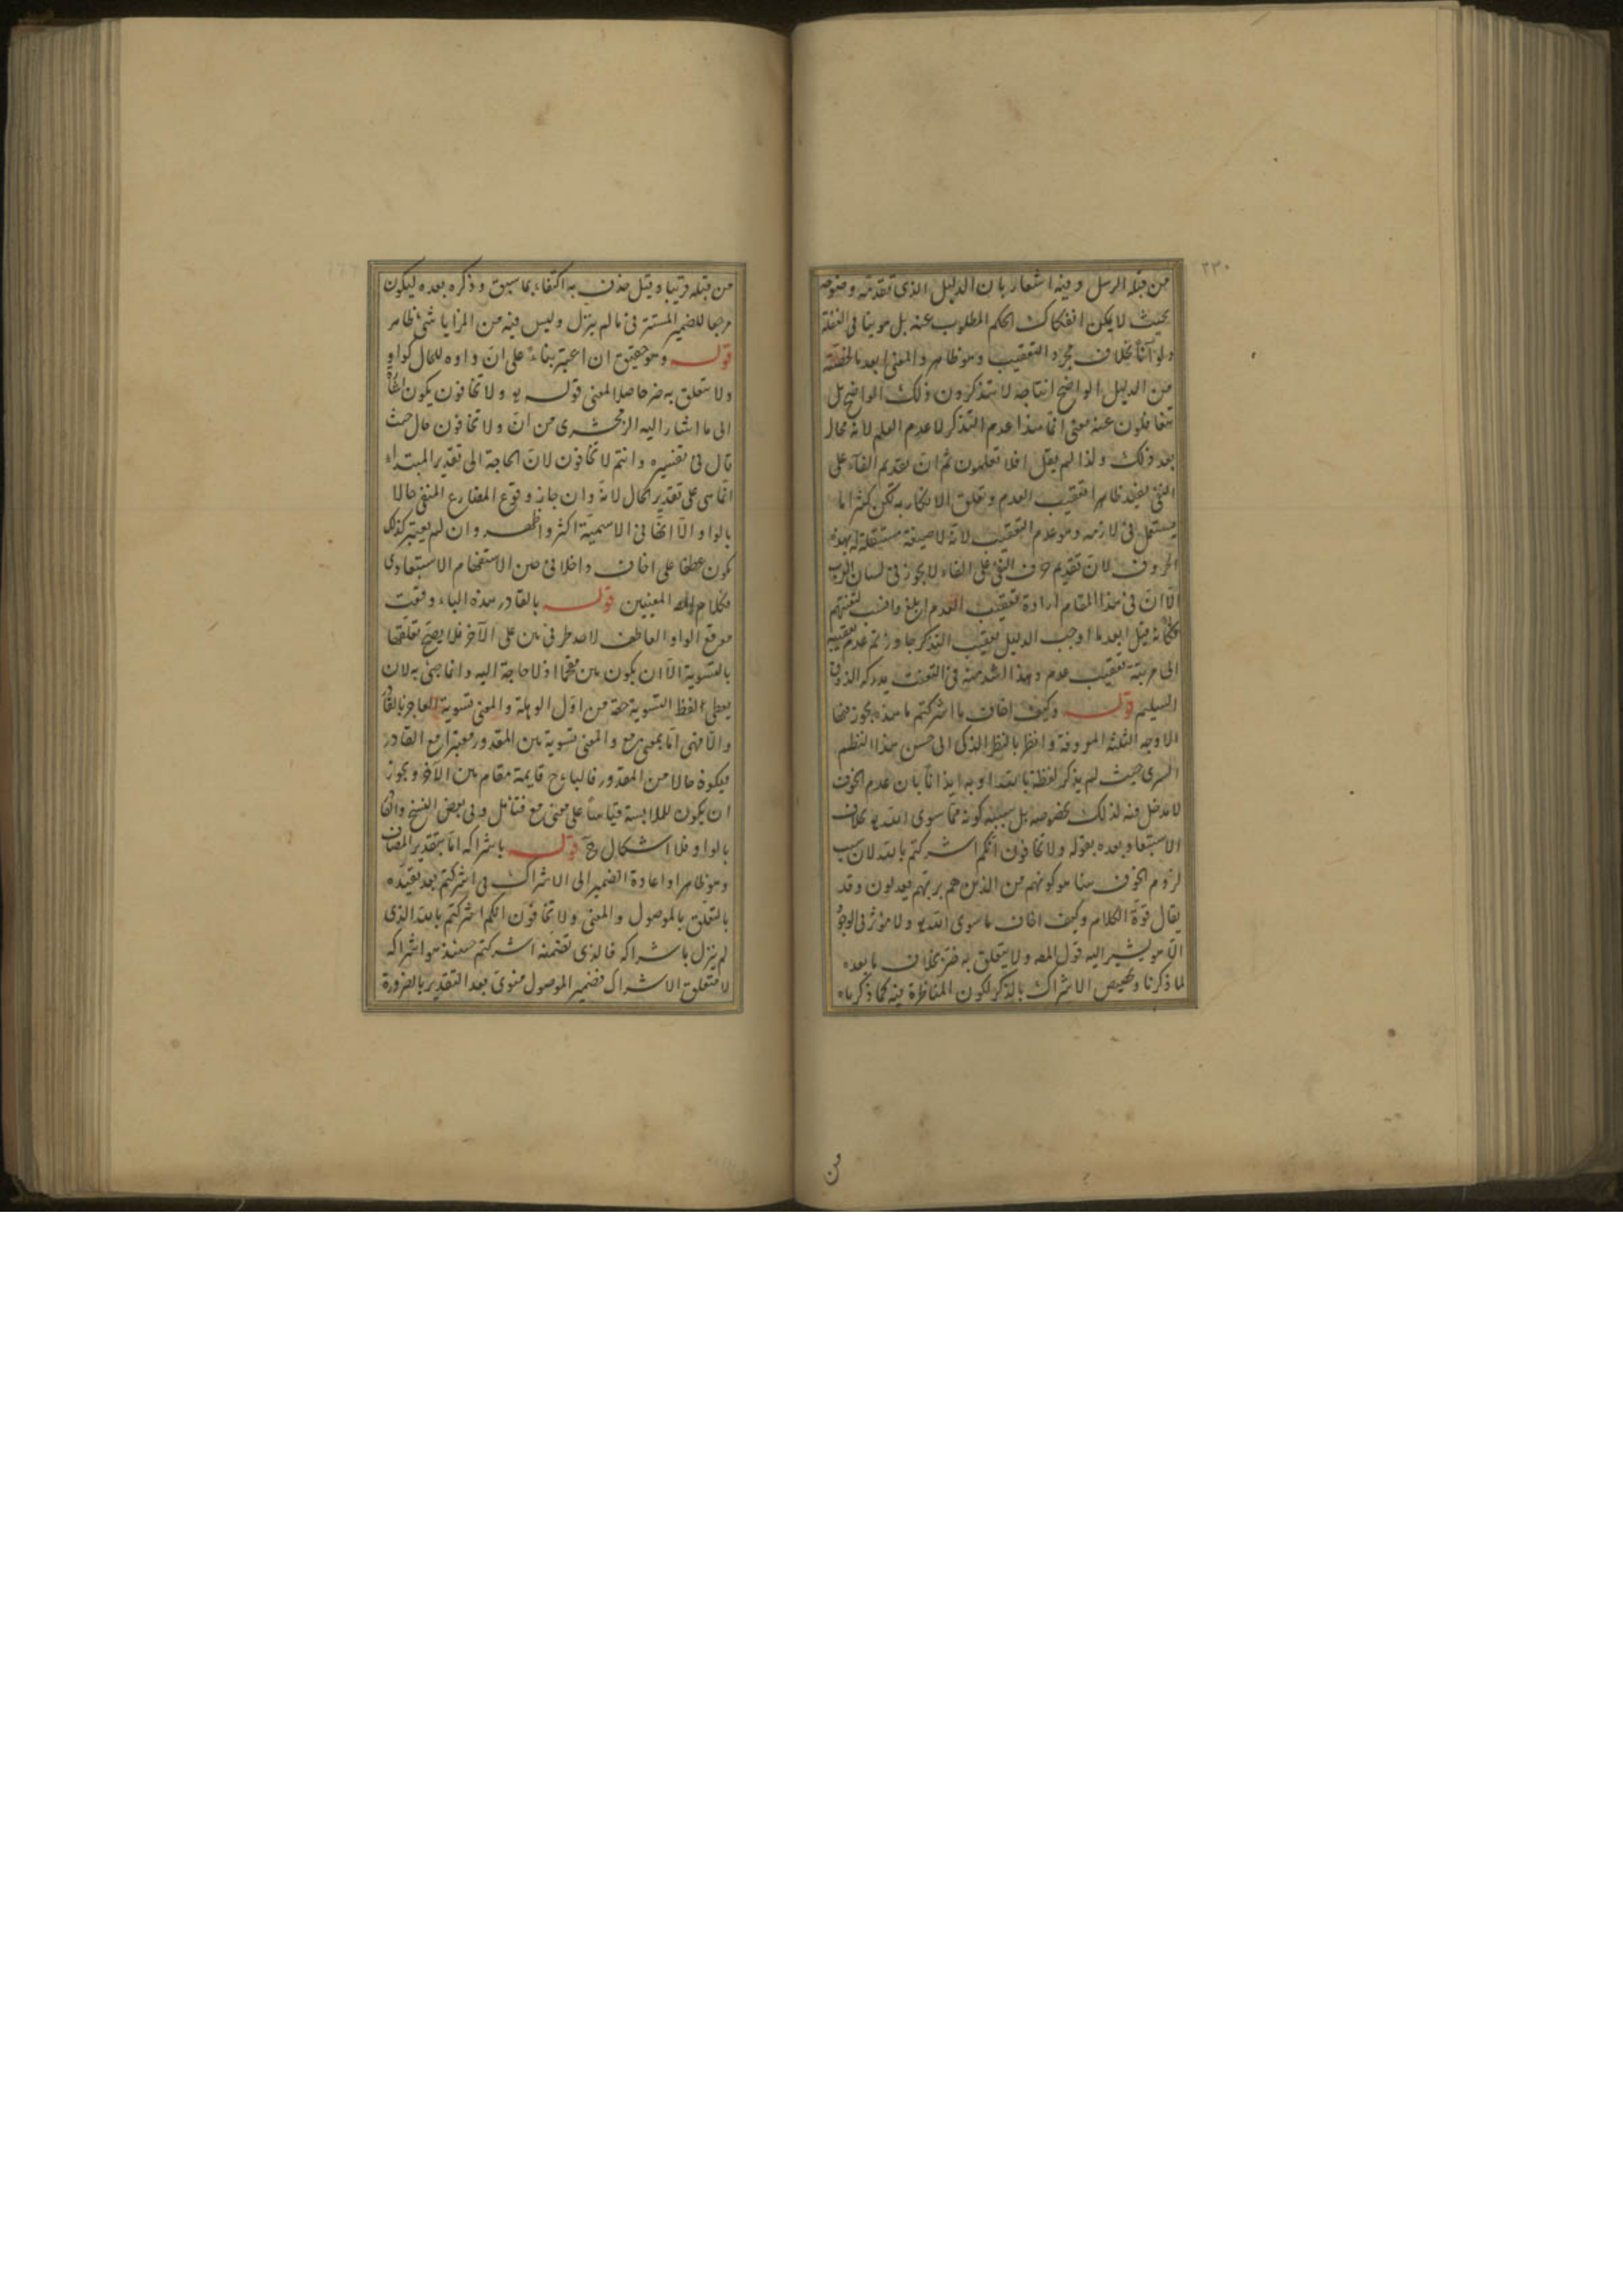 ٢٣٠
من قبله الرسل وفيه اشعار بان الدليل الذى تقدمته وضوحه
بحيث لا يمكن انفكاك الحكم المطلوب عنه بل هو بينا فى الغفلة
ولو آنًا بخلاف مجرد التعقيب وهو ظاهر والمعنى ابعد ما لخصته
من الدليل الواضح انتاجه لا تتذكرون ذلك الواضح بل
تتغافلون عنه معنى انما هذا عدم التذكر لا عدم العلم لانه محال
بعد ذلك ولذا لم يقل افلا تعلمون ثم ان تقديم الفاء على
النفى يفيد ظاهرا تعقيب العدم وتعلق الانكار به لكن كثيرا ما
يستعمل فى لازمه وهو عدم التعقيب لانه لا صيغة مستقلة له بهذه
الحروف لان تقديم حرف النفى على الفاء لا يجوز فى لسان العرب
الّا انّ فى هذا المقام ارادة تعقيب العدم ابلغ وانسب لتعنتهم
فكانه قيل ابعد ما اوجب الدليل تعقيب التذكر جاوزتم عدم تعقيبه
الى مرتبة تعقيب عدم وهذا اشد منه فى التعنت يدركه الذوق
السليم قوله وكيف اخاف ما اشركتم ما هذه يجوز فيها
الاوجه الثلثة المعروفة وانظر بالنظر الذكى الى حسن هذا النظم
السرى حيث لم يذكر لفظة بالله او به ايذانًا بان عدم الخوف
لا مدخل فيه لذلك بخصوصه بل سببه كونه مما سوى الله يو بخلاف
الاستبعاد بعده بقوله ولا تخافون انكم اشركتم بالله لان سبب
لزوم الخوف هنا هو كونهم من الذين هم بربهم يعدلون وقد
يقال قوة الكلام وكيف اخاف ما سوى الله يو ولا مؤثر فى الوجود
الّا هو يشير اليه قول المصه ولا يتعلق به ضر بخلاف ما بعده
لما ذكرنا وتخصيص الاشراك بالذكر لكون المناظرة فيه كما ذكرناه
من
من قبله قريبا وقيل حذف به اكتفاء بما سبق وذكره بعده ليكون
مرجعا للضمير المستتر فى ما لم ينزل وليس فيه من المزايا شىء ظاهر
قوله وهو حقيق ان اعتبر بناء على انّ واوه للحال كواو
ولا يتعلق به ضر حاصلا لمعنى قوله يو ولا تخافون يكون
الى ما اشار اليه الزمخشرى من انّ ولا تخافون حال حيث
قال فى تفسيره وانتم لا تخافون لانّ الحاجة الى تقدير المبتداء
انما هى على تقدير الحال لانه وان جاز وقوع المضارع المنفى حالا
بالواو الّا انها فى الاسمية اكثر واظهر وان لم يعتبر كذلك
يكون عطفا على اخاف داخلا فى حين الاستفهام الاستبعادى
فكلام المصه المعنيين قوله بالقادر هذه الباء وقعت
موقع الواو العاطف لاحد طرفى بين على الآخر فلا يصح تعلقها
بالتسوية الّا ان يكون بين مقحما اذ لا حاجة اليه وانما صنى به لان
يعطى لفظ التسوية حقه من اول الوهلة والمعنى تسوية العاجز بالقادر
والّا فهى امّا بمعنى مع والمعنى تسوية بين المقدور معتبرا مع القادر
فيكون حالا من المقدور فالباء ح قايمة مقام بين الآخر ويجوز
ان يكون للملابسة قياسًا على معنى مع فتامّل وفى بعض النسخ والقادر
بالواو فلا اشكال ح قوله باشراكه امّا بتقدير المضاف
وهو ظاهر او اعادة الضمير الى الاشراك فى اشركتم بعد تقيده
بالتعلق بالموصول والمعنى ولا تخافون انكم اشركتم بالله الذى
لم ينزل باشراكه فالذى تضمنه اشركتم حينئذ هو اشراكه
لا متعلق الاشراك فضمير الموصول منوى بعد التقدير بالضرورة